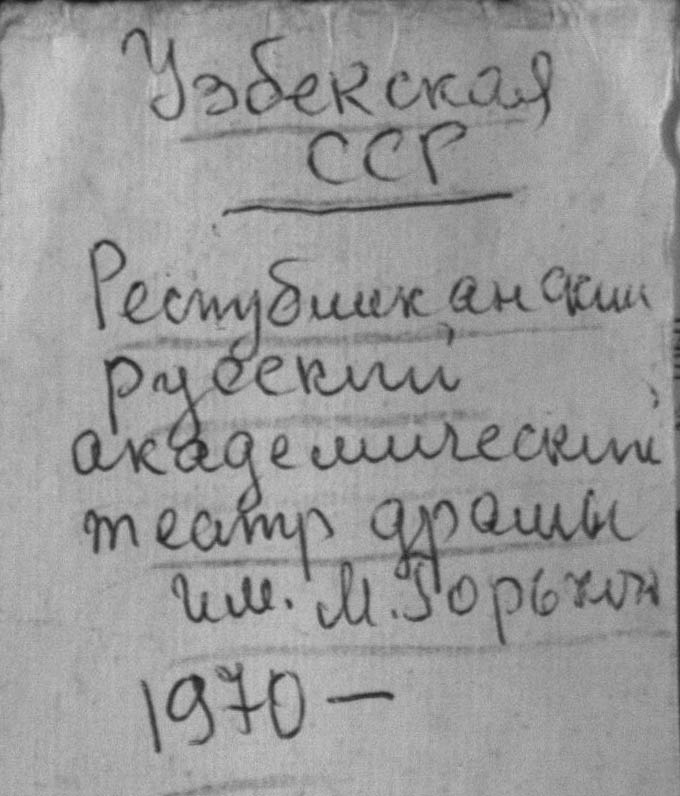 Узбекская
ССР
Республиканский
русский
академический
театр драмы
им. М. Горького
1970 —